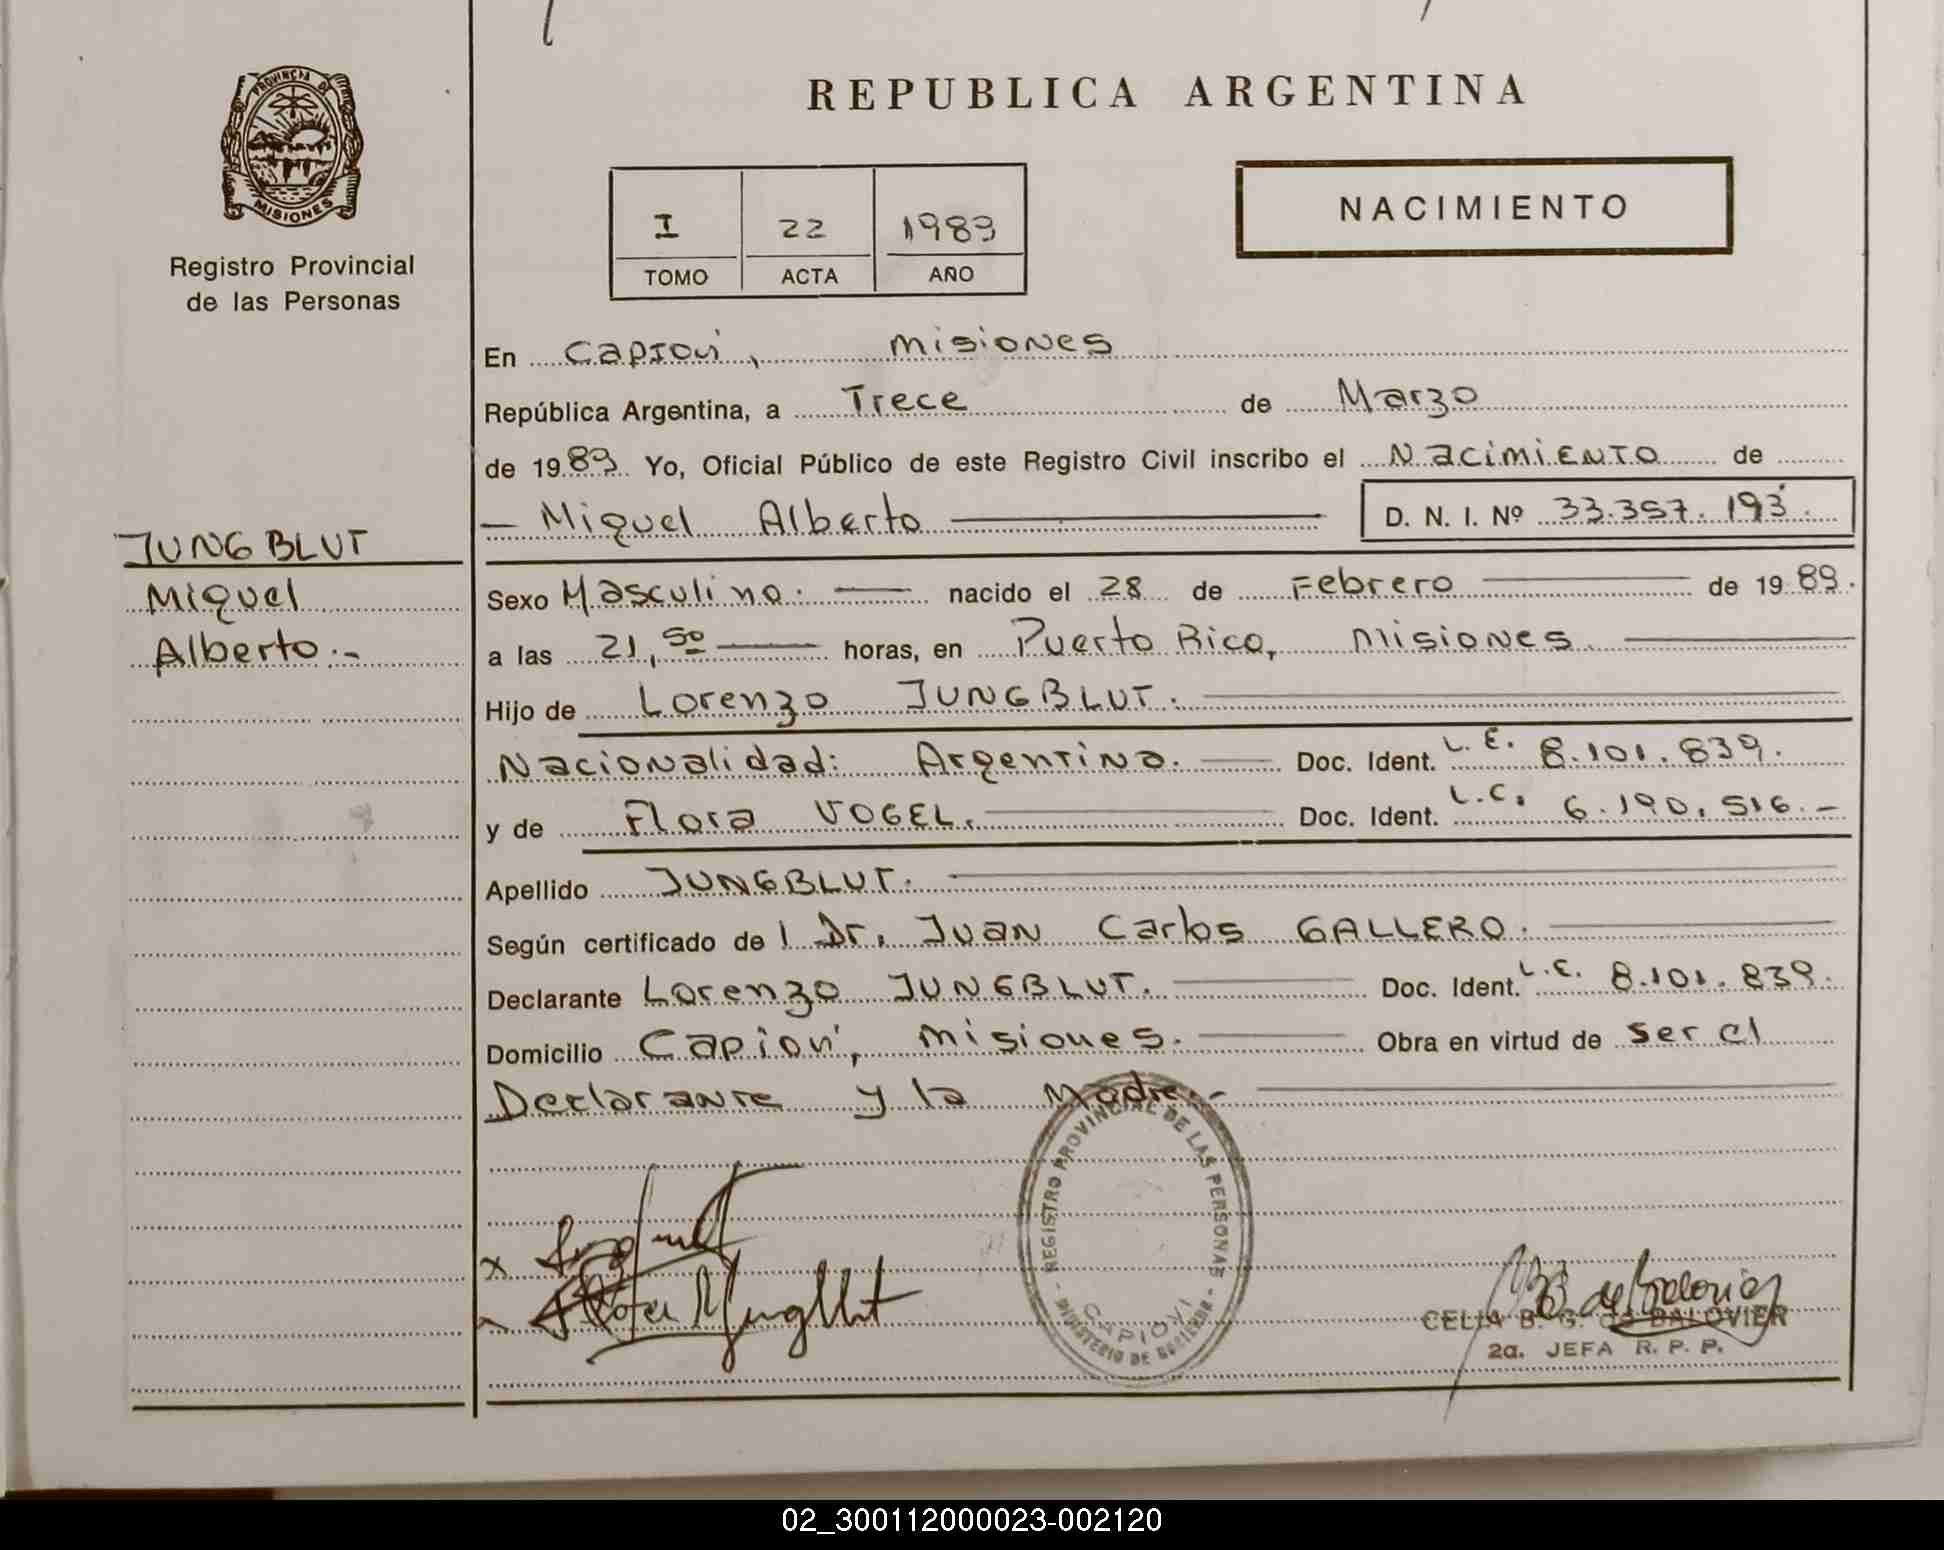 REPUBLICA ARGENTINA
PROVINCIA DE
MISIONES
Registro Provincial
de las Personas
I 22 1989
TOMO ACTA AÑO
NACIMIENTO
En Capioví, Misiones
República Argentina, a Trece de Marzo
de 1989 Yo, Oficial Público de este Registro Civil inscribo el Nacimiento de
— Miguel Alberto — D. N. I. Nº 33.357.193.
JUNGBLUT
Miguel
Alberto.-
Sexo Masculino. — nacido el 28 de Febrero — de 1989.
a las 21,50 — horas, en Puerto Rico, Misiones. —
Hijo de Lorenzo JUNGBLUT. —
Nacionalidad: Argentina. — Doc. Ident. L.E. 8.101.839.
y de Flora VOGEL. — Doc. Ident. L.C. 6.190.516.-
Apellido JUNGBLUT. —
Según certificado del Dr. Juan Carlos GALLERO. —
Declarante Lorenzo JUNGBLUT. — Doc. Ident. L.E. 8.101.839.
Domicilio Capioví, Misiones. — Obra en virtud de ser el
Declarante y la Madre.- —
REGISTRO PROVINCIAL DE LAS PERSONAS
CAPIOVI
MINISTERIO DE GOBIERNO
CELIA B. G. de BALOVIER
2a. JEFA R. P. P.
02_300112000023-002120